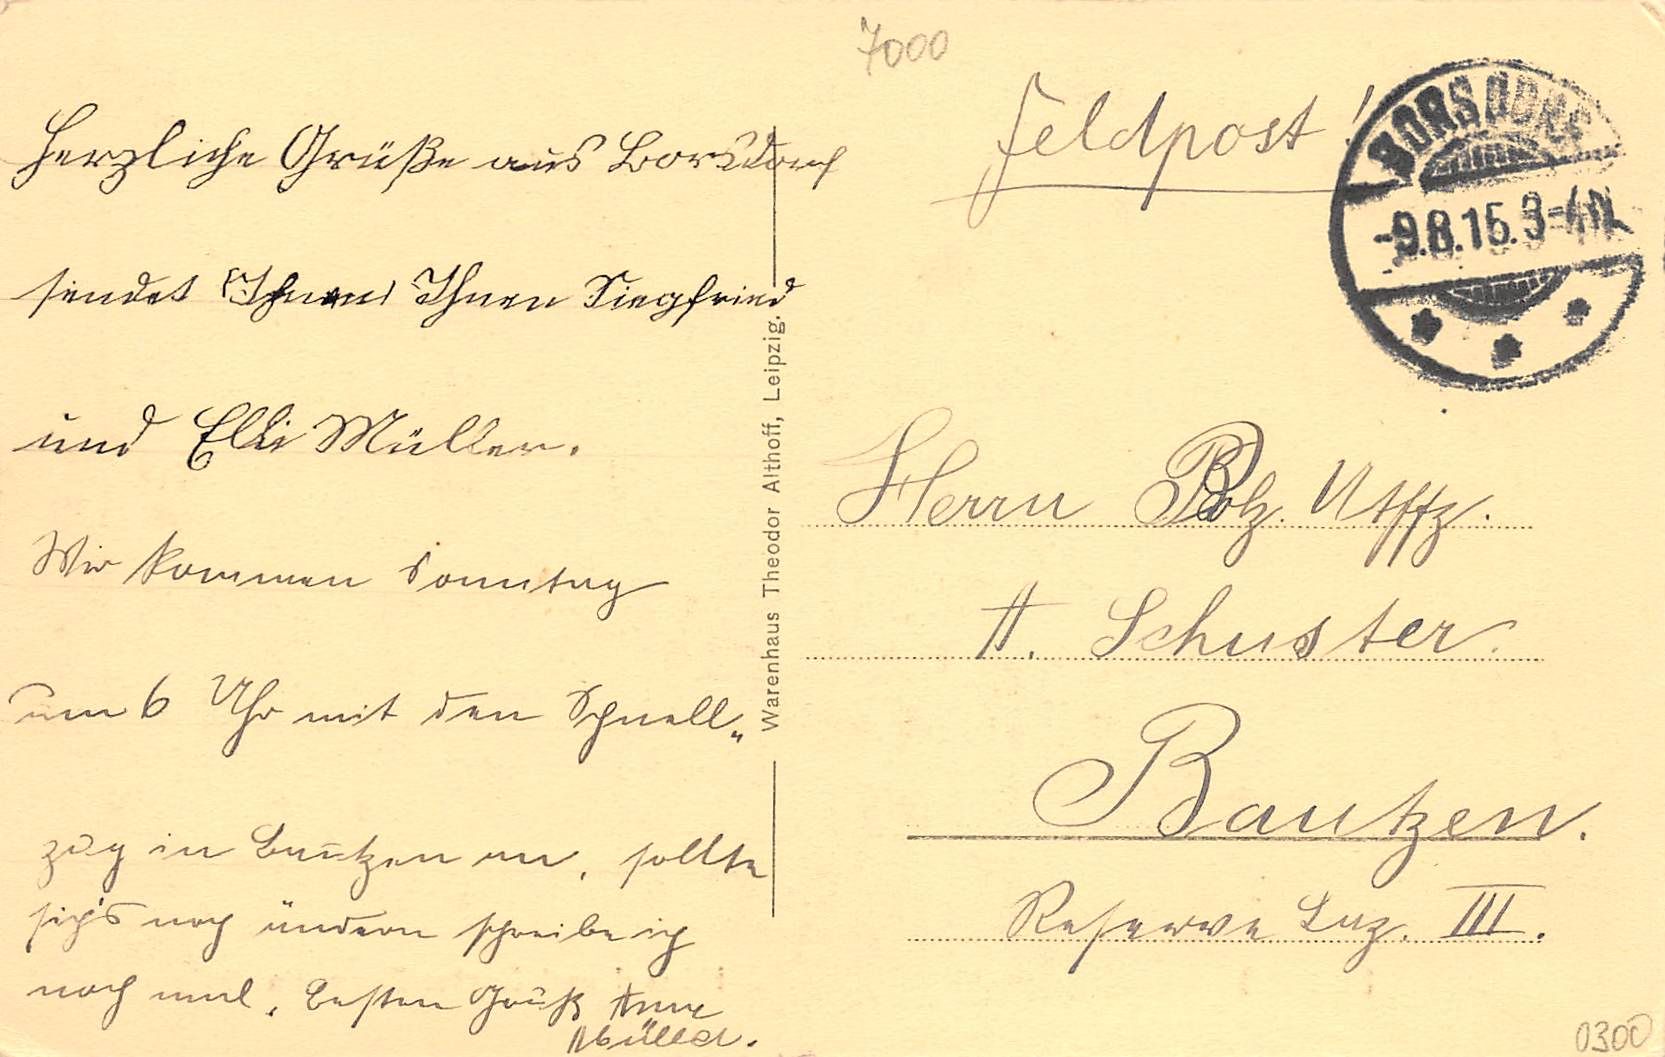 7000
Feldpost!
BORSDORF
-9.8.15.3-4N.
Herzliche Grüße aus Borsdorf
sendet (Ihnen) Ihnen Siegfried
und Elli Müller.
Wir kommen Sonntag
um 6 Uhr mit den Schnell„
zug in Bautzen an, sollte
sich's noch ändern schreibe ich
noch mal. Besten Gruß Anne
Müller.
Warenhaus Theodor Althoff, Leipzig.
Herrn Utffz.
A. Schuster
Bautzen.
Reserve Laz. III.
0300